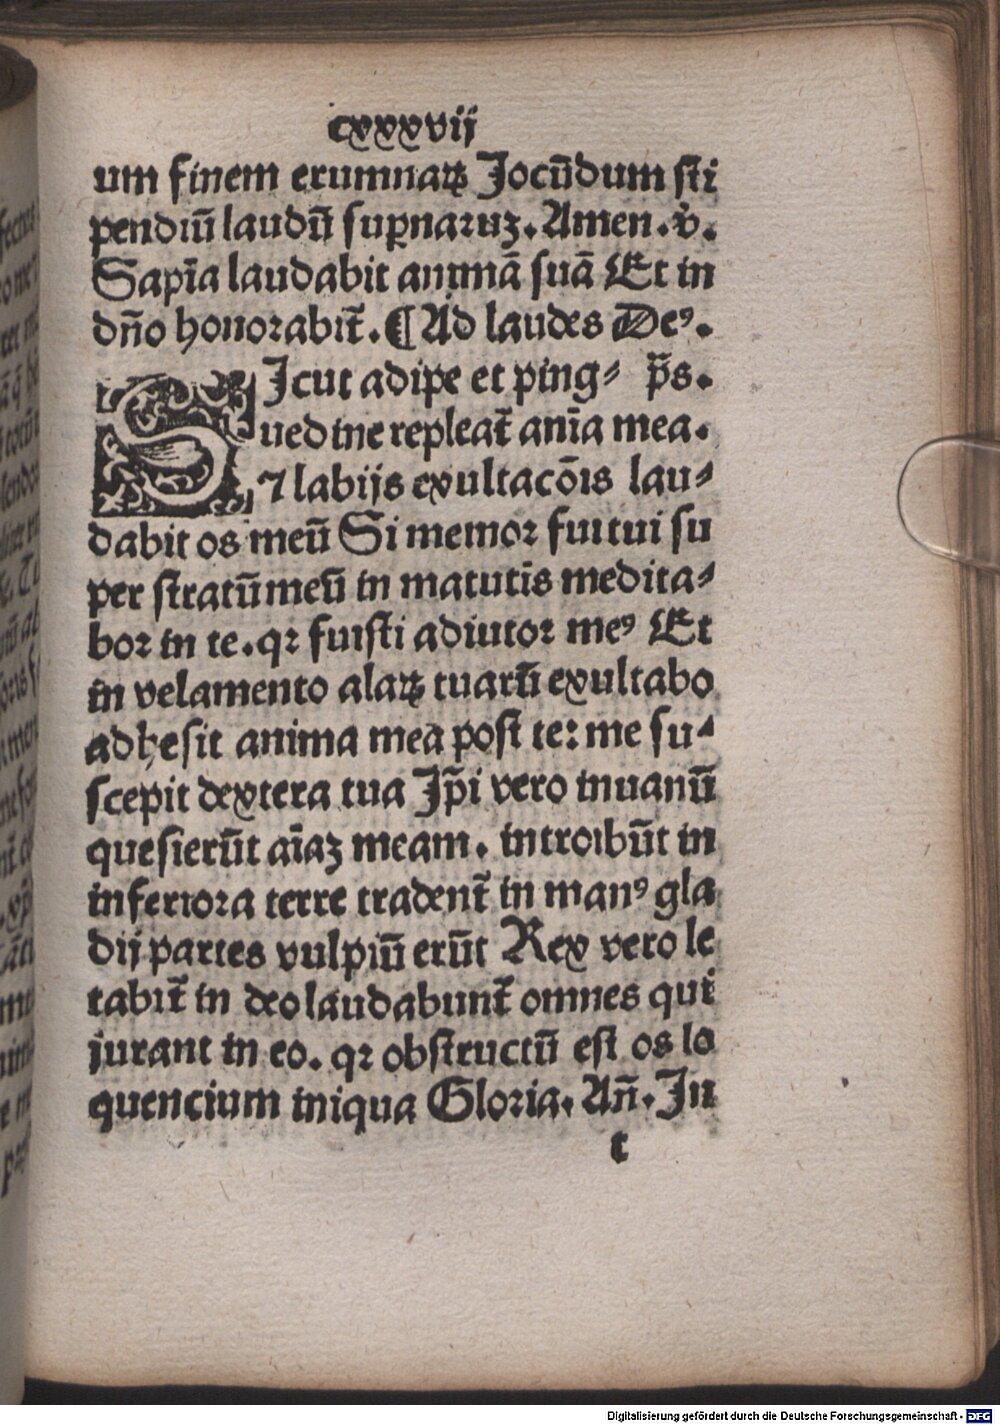 cxxxvij
um finem erumnaꝝ Jocūdum sti
pendiū laudū suꝑnaruꝫ. Amen. v̾.
Sapīa laudabit animā suā Et in
dn̄o honorabit̄. ¶ Ad laudes Deꝰ.
SJcut adipe et ping⸗ p̄s.
uedine repleat̄ anīa mea.
⁊ labijs exultacōis lau⸗
dabit os meū Si memor fui tui su
per stratū meū in matutīs medita⸗
bor in te. qꝛ fuisti adiutor meꝰ Et
in velamento alaꝝ tuarū exultabo
adhesit anima mea post te: me su⸗
scepit dextera tua Jp̄i vero inuanū
quesierūt aīaꝫ meam. introibūt in
inferiora terre tradent̄ in manꝰ gla
dij partes vulpiū erūt Rex vero le
tabit̄ in deo laudabunt̄ omnes qui
jurant in eo. qꝛ obstructū est os lo
quencium iniqua Gloria. An̄. In
t
Digitalisierung gefördert durch die Deutsche Forschungsgemeinschaft - DFG